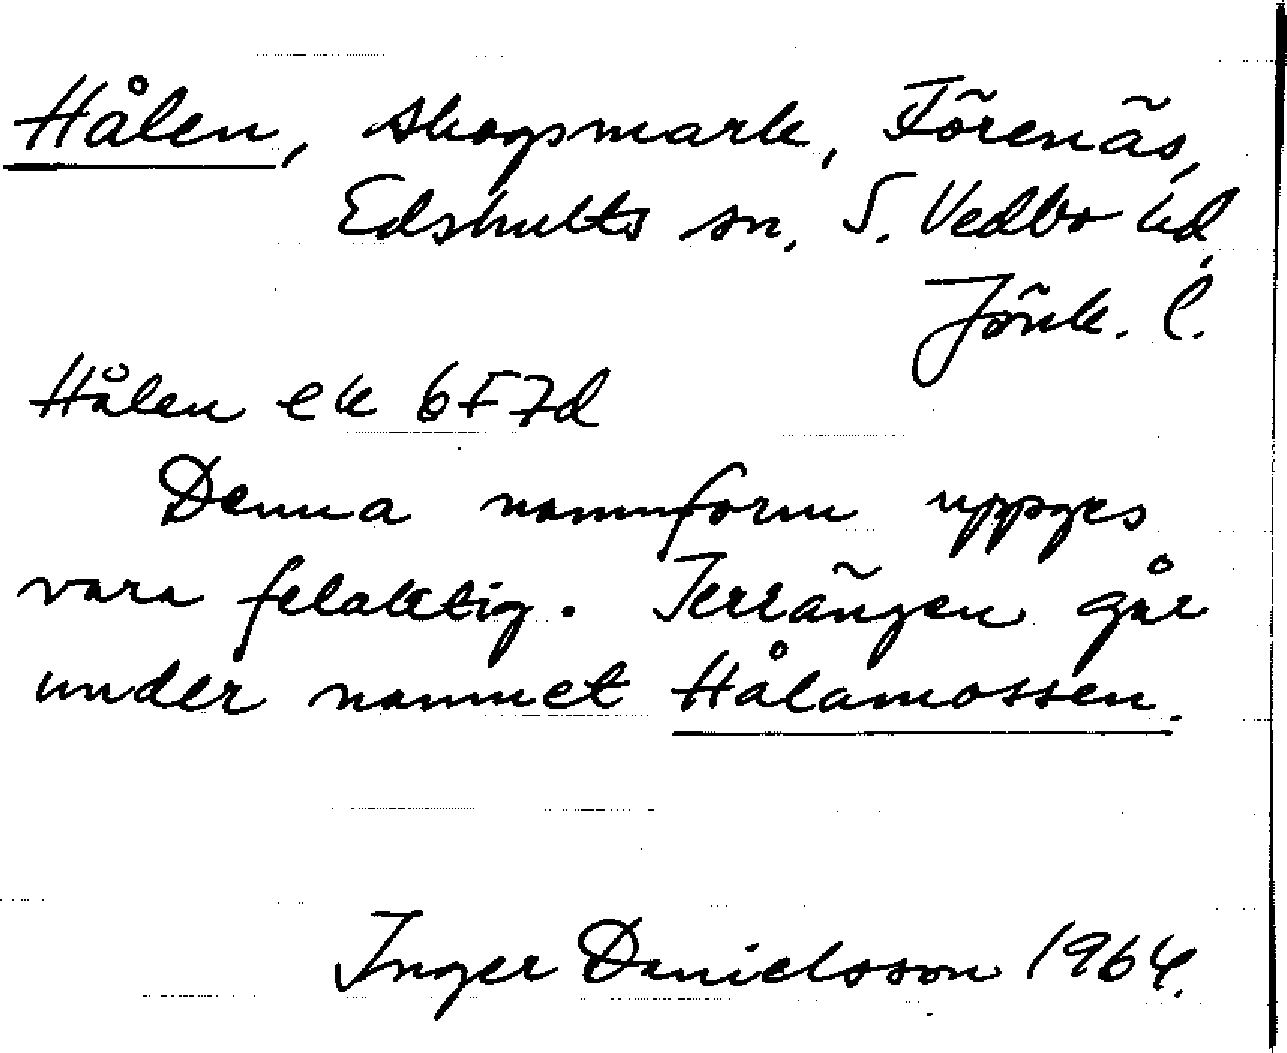 Hålen, skogsmark, Förenäs,
Edshults sn, S. Vedbo hd,
Jönk. l.
Hålen ek 6F7d
Denna namnform uppges
vara felaktig. Terrängen går
under namnet Hålamossen.
Inger Danielsson 1964.